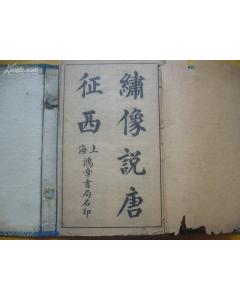 繡像說唐
征西
上海鴻章書局石印